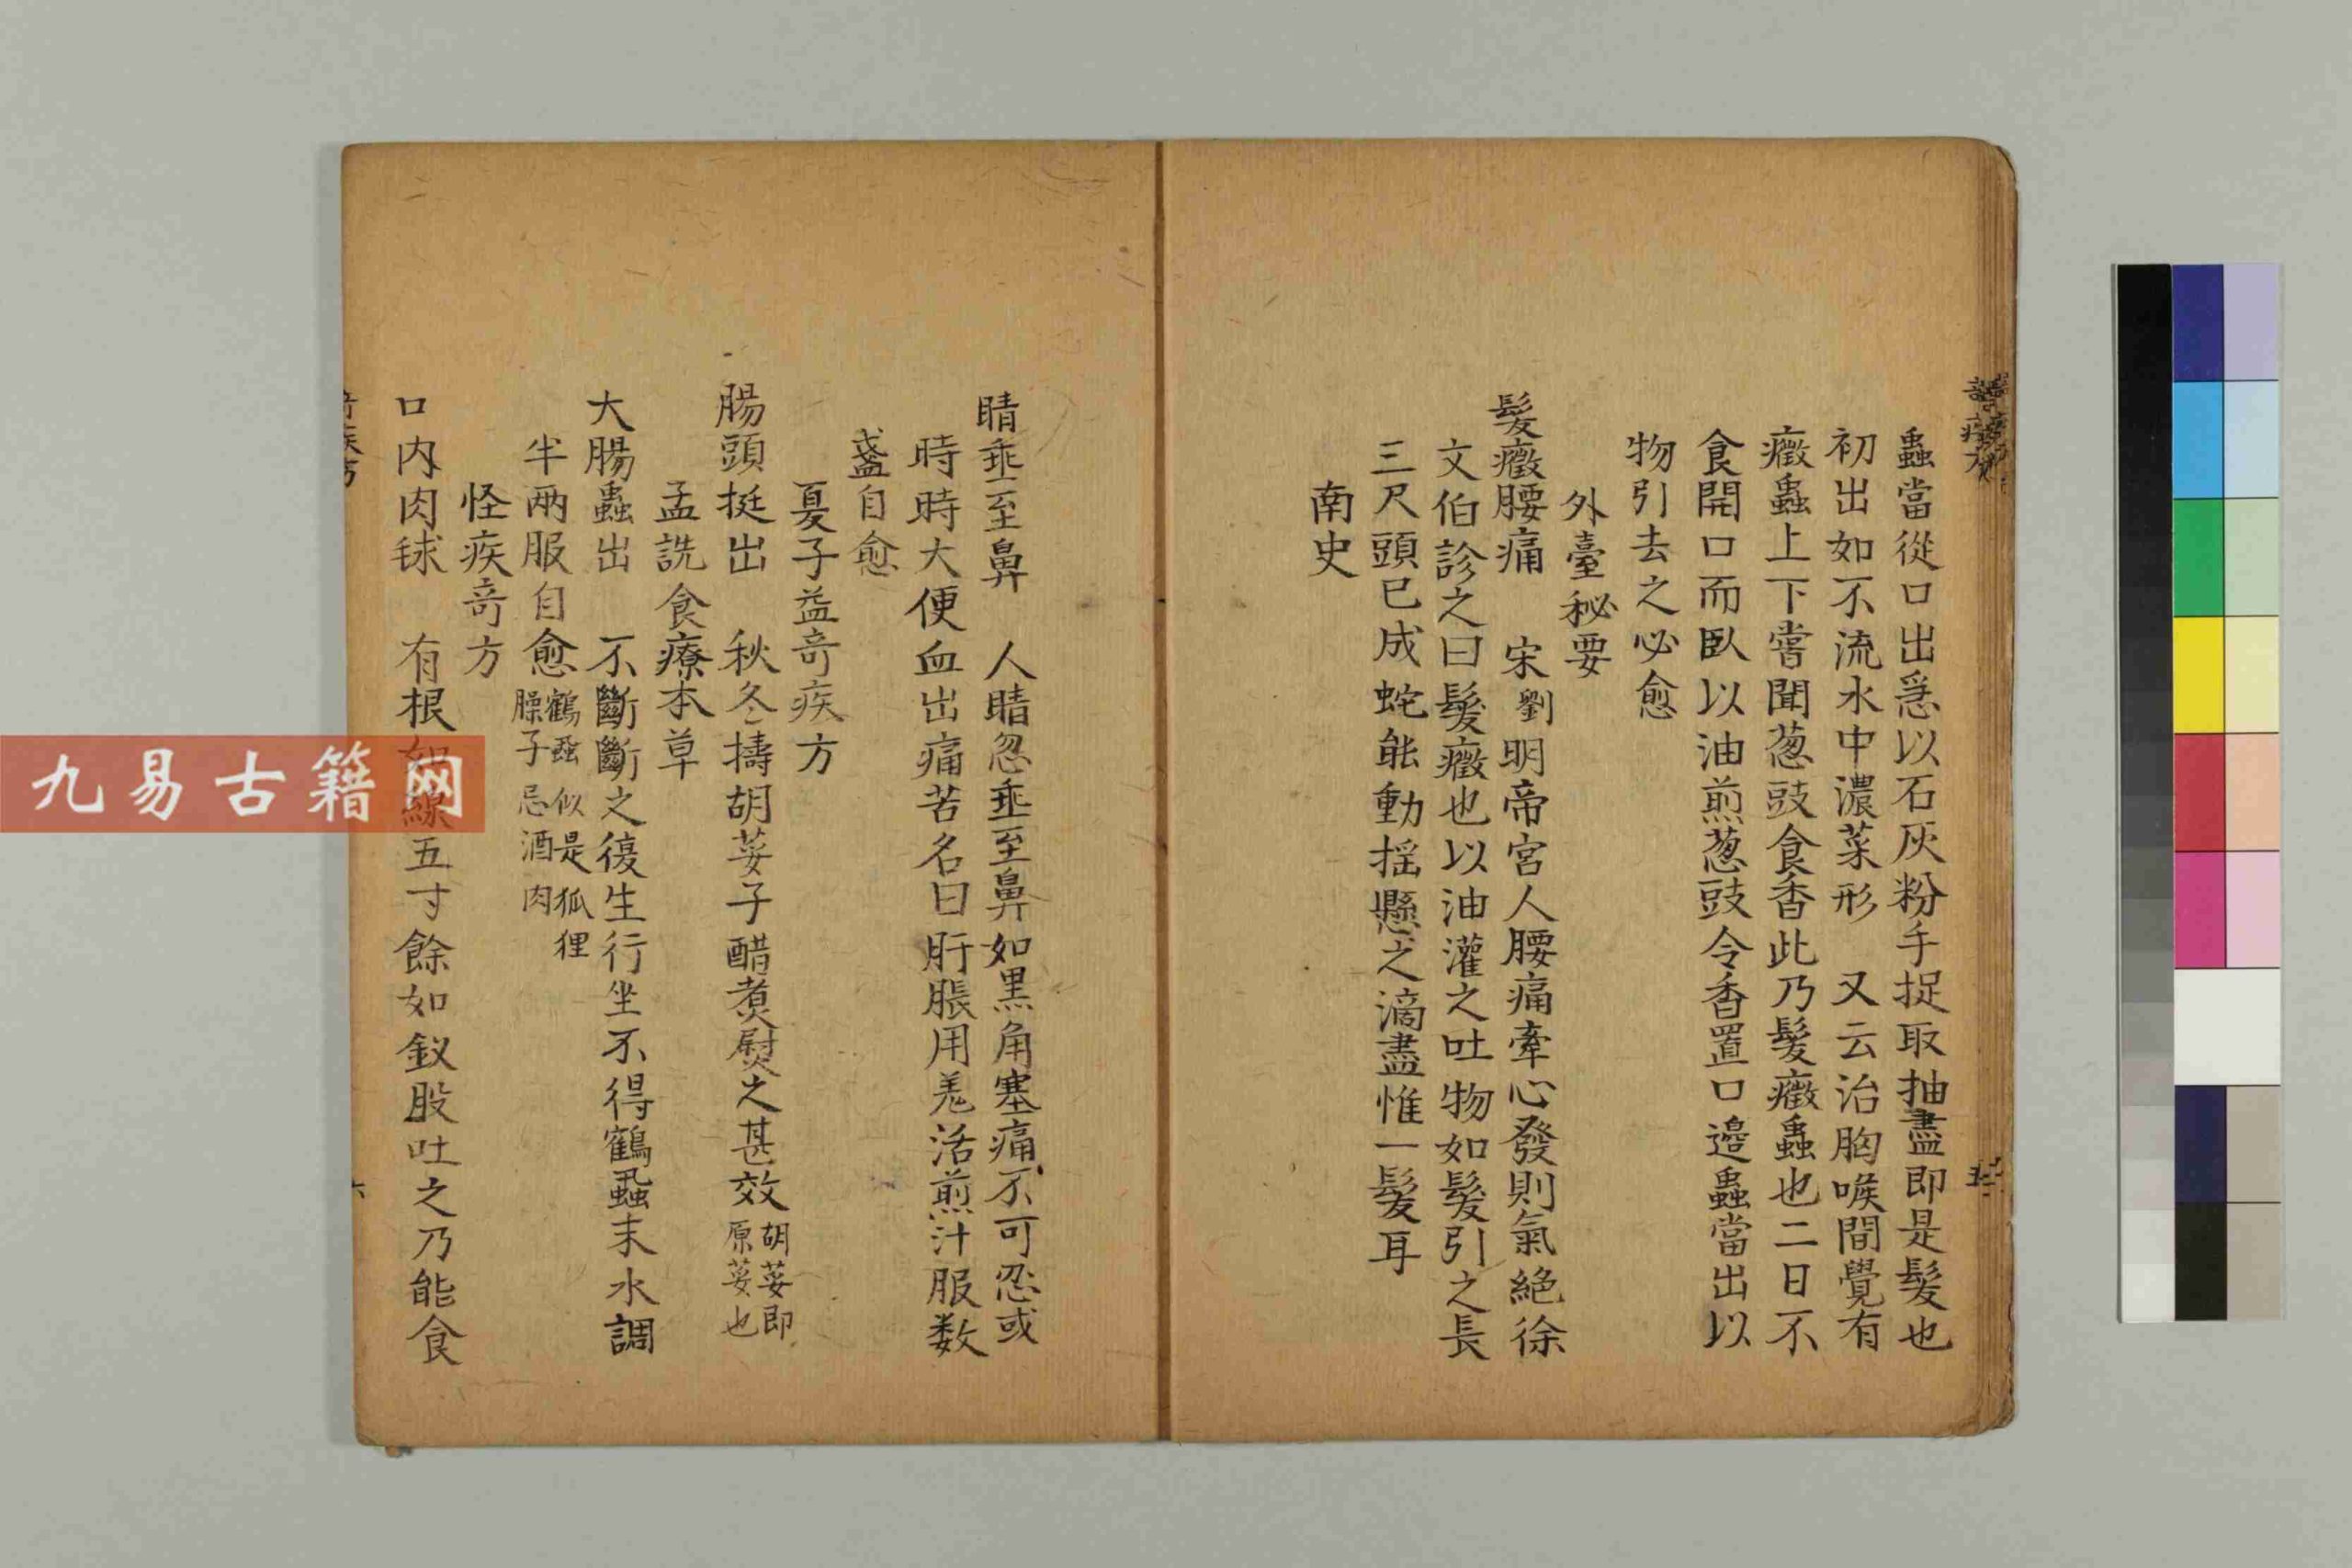 蟲當從口出急以石灰粉手捉取抽盡即是髮也
初出如不流水中濃菜形　又云治胸喉間覺有
癥蟲上下嘗聞葱豉食香此乃髮癥蟲也二日不
食開口而臥以油煎葱豉令香置口邊蟲當出以
物引去之必愈
外臺秘要
髮癥腰痛　宋劉明帝宮人腰痛牽心發則氣絕徐
文伯診之曰髮癥也以油灌之吐物如髮引之長
三尺頭已成蛇能動搖懸之滴盡惟一髮耳
南史
睛垂至鼻　人睛忽垂至鼻如黑角塞痛不可忍或
時時大便血出痛苦名曰肝脹用羌活煎汁服数
盞自愈
夏子益奇疾方
腸頭挺出　秋冬擣胡荽子醋煮熨之甚效胡荽即
原荽也
孟詵食療本草
大腸蟲出　不斷斷之復生行坐不得鶴蝨末水調
半兩服自愈鶴蝨似是狐狸
臊子忌酒肉
怪疾奇方
口内肉毬　有根如線五寸餘如釵股吐之乃能食
九易古籍网